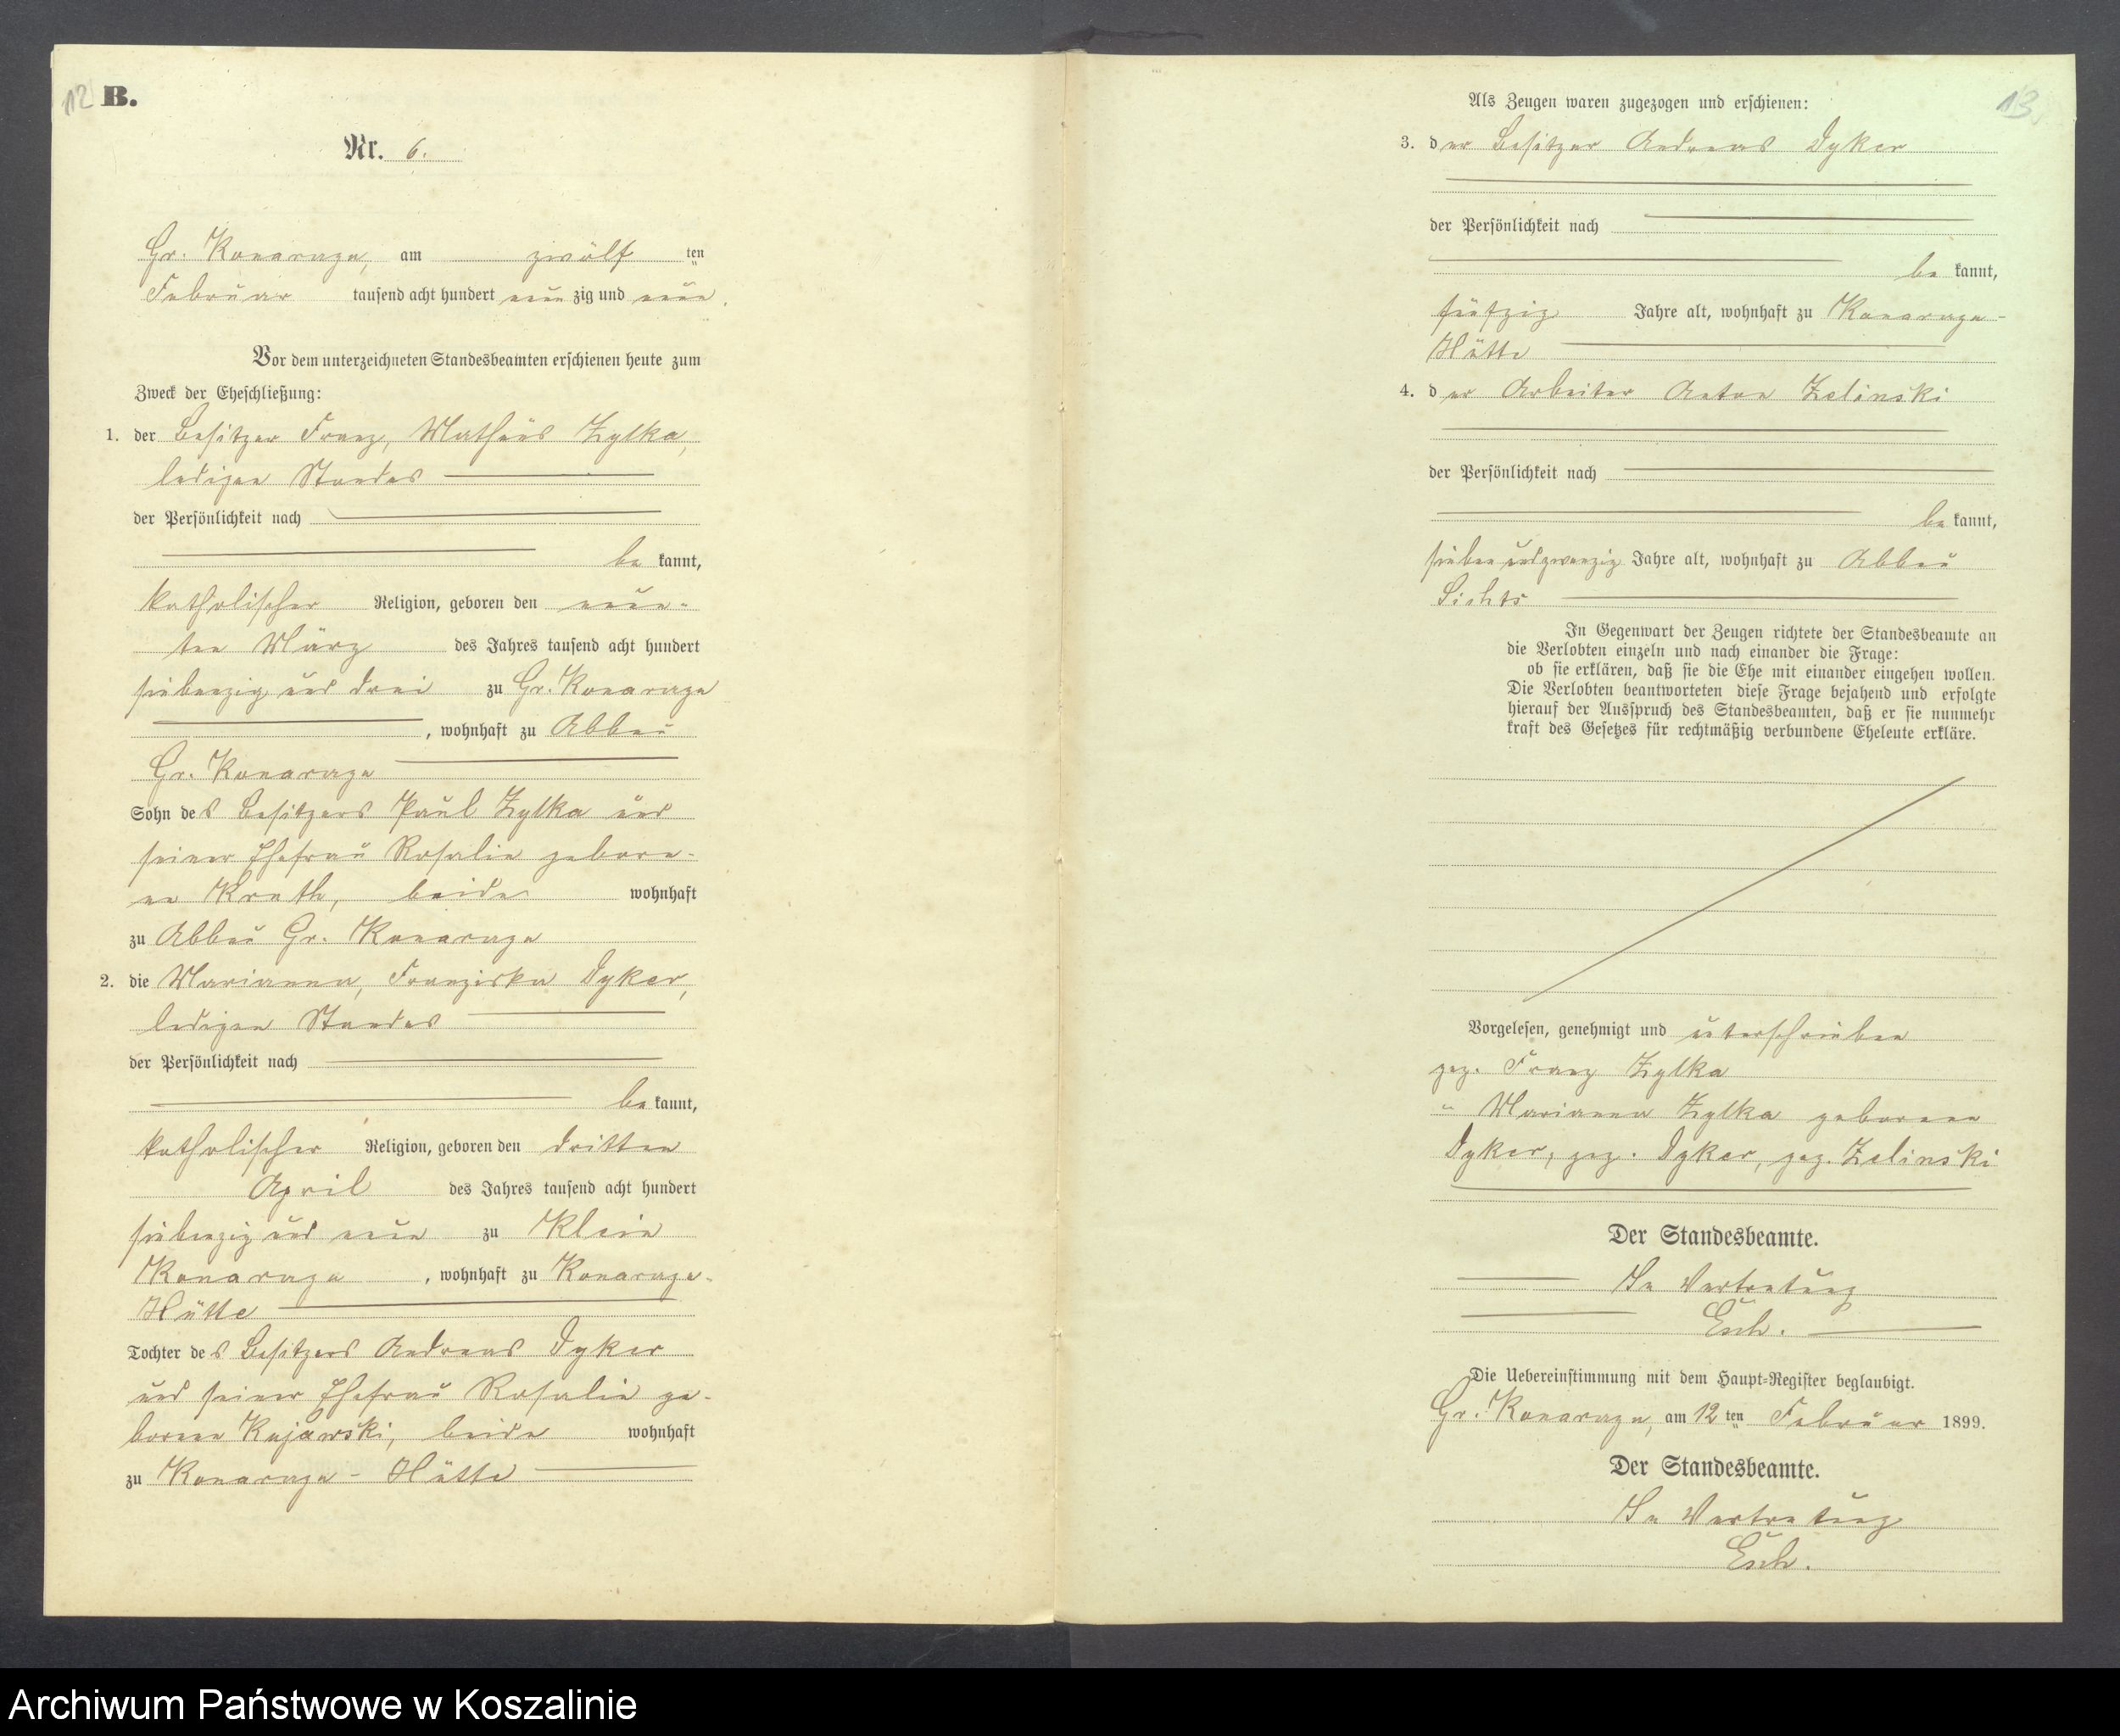 12 B.
Nr. 6.
Gr. Konarzyn, am zwölf ten
Februar tausend acht hundert neun zig und neun.
Vor dem unterzeichneten Standesbeamten erschienen heute zum
Zweck der Eheschließung:
1. der Besitzer Franz, Mathäus Zylka,
ledigen Standes
der Persönlichkeit nach
be kannt,
katholischer Religion, geboren den neun-
ten März des Jahres tausend acht hundert
siebenzig und drei zu Gr. Konarzyn
, wohnhaft zu Abbau
Gr. Konarzyn
Sohn des Besitzers Paul Zylka und
seiner Ehefrau Rosalie gebore-
ne beide wohnhaft
zu Abbau Gr. Konarzyn
2. die Marianna, Franziska Dyker,
ledigen Standes
der Persönlichkeit nach
be kannt,
katholischer Religion, geboren den dritten
April des Jahres tausend acht hundert
siebenzig und neun zu Klein
Konarzyn, wohnhaft zu Konarzyn-
Hütte
Tochter des Besitzers Andreas Dyker
und seiner Ehefrau Rosalie ge-
borene Kujawski, beide wohnhaft
zu Konarzyn-Hütte
13
Als Zeugen waren zugezogen und erschienen:
3. der Besitzer Andreas Dyker
der Persönlichkeit nach
be kannt,
fünfzig Jahre alt, wohnhaft zu Konarzyn-
Hütte
4. der Arbeiter Anton Zelinski
der Persönlichkeit nach
be kannt,
sieben und zwanzig Jahre alt, wohnhaft zu Abbau
Sichts
In Gegenwart der Zeugen richtete der Standesbeamte an
die Verlobten einzeln und nach einander die Frage:
ob sie erklären, daß sie die Ehe mit einander eingehen wollen.
Die Verlobten beantworteten diese Frage bejahend und erfolgte
hierauf der Ausspruch des Standesbeamten, daß er sie nunmehr
kraft des Gesetzes für rechtmäßig verbundene Eheleute erkläre.
Vorgelesen, genehmigt und unterschrieben
gez. Franz Zylka
" Marianna Zylka geborene
Dyker, gez. Dyker, gez. Zelinski
Der Standesbeamte.
In Vertretung
Die Uebereinstimmung mit dem Haupt-Register beglaubigt.
Gr. Konarzyn, am 12 ten Februar 1899.
Der Standesbeamte.
In Vertretung
Archiwum Państwowe w Koszalinie